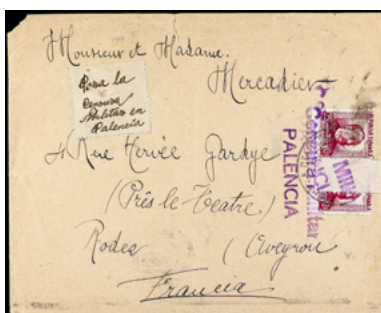 Monsieur et Madame.
Mercadier
Pasa la
Censura
Militar en
Palencia
4 Rue Hervée Gardye
(Près le Teatre)
Rodez (Aveyron
Francia
Censura Militar
PALENCIA